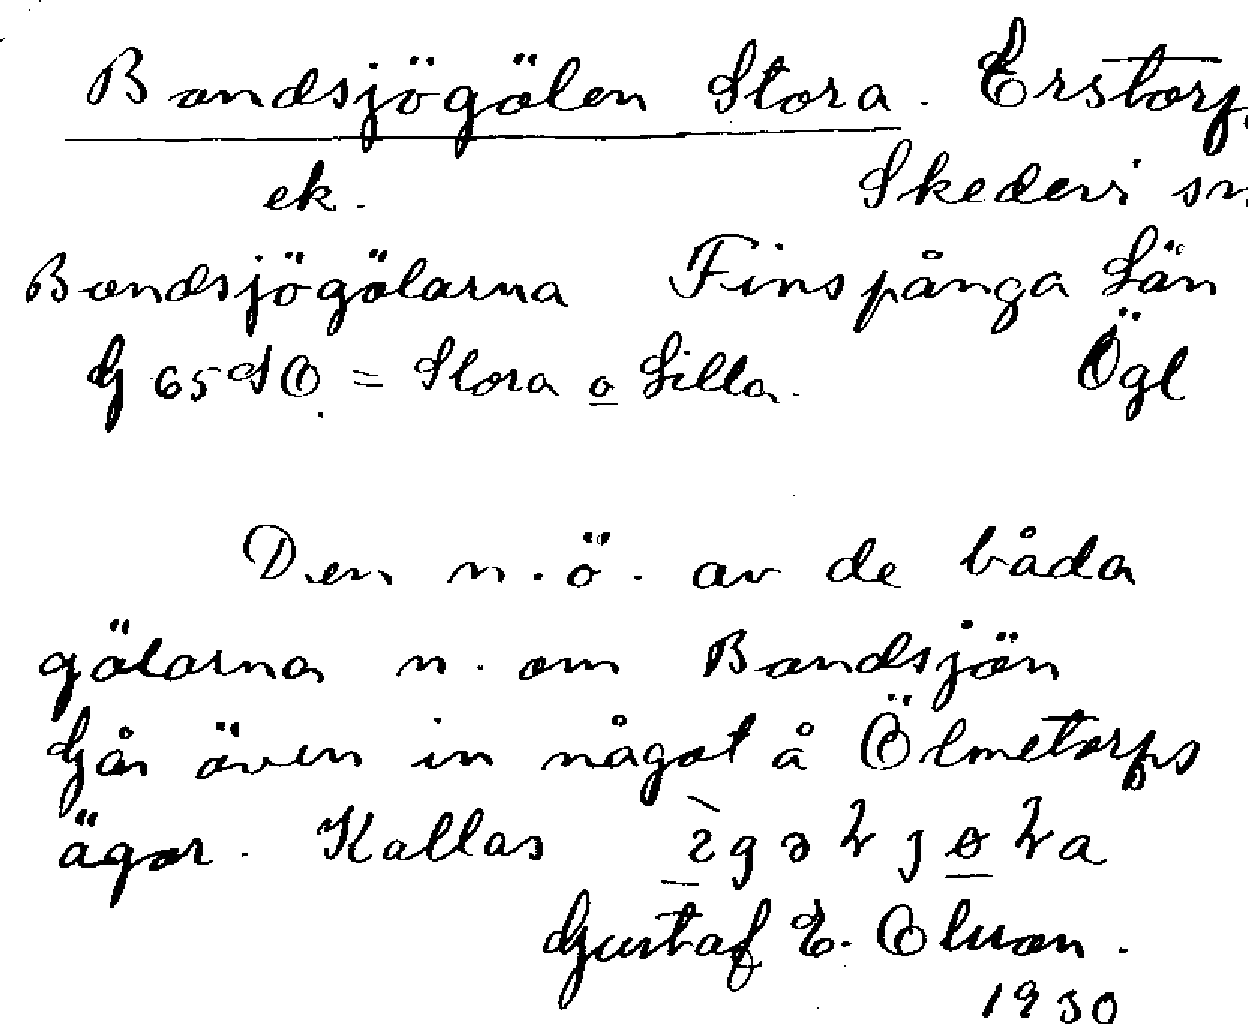 Bandsjögölen Stora. Erstorp,
ek. Skedevi sn
Bandsjögölarna Finspånga Län
G 65 SO = Stora o Lilla. Ögl
Den n.ö. av de båda
gölarna n. om Bandsjön
Går även in något å Ölmetorps
ägor. Kallas
Gustaf E. Olsson.
1930